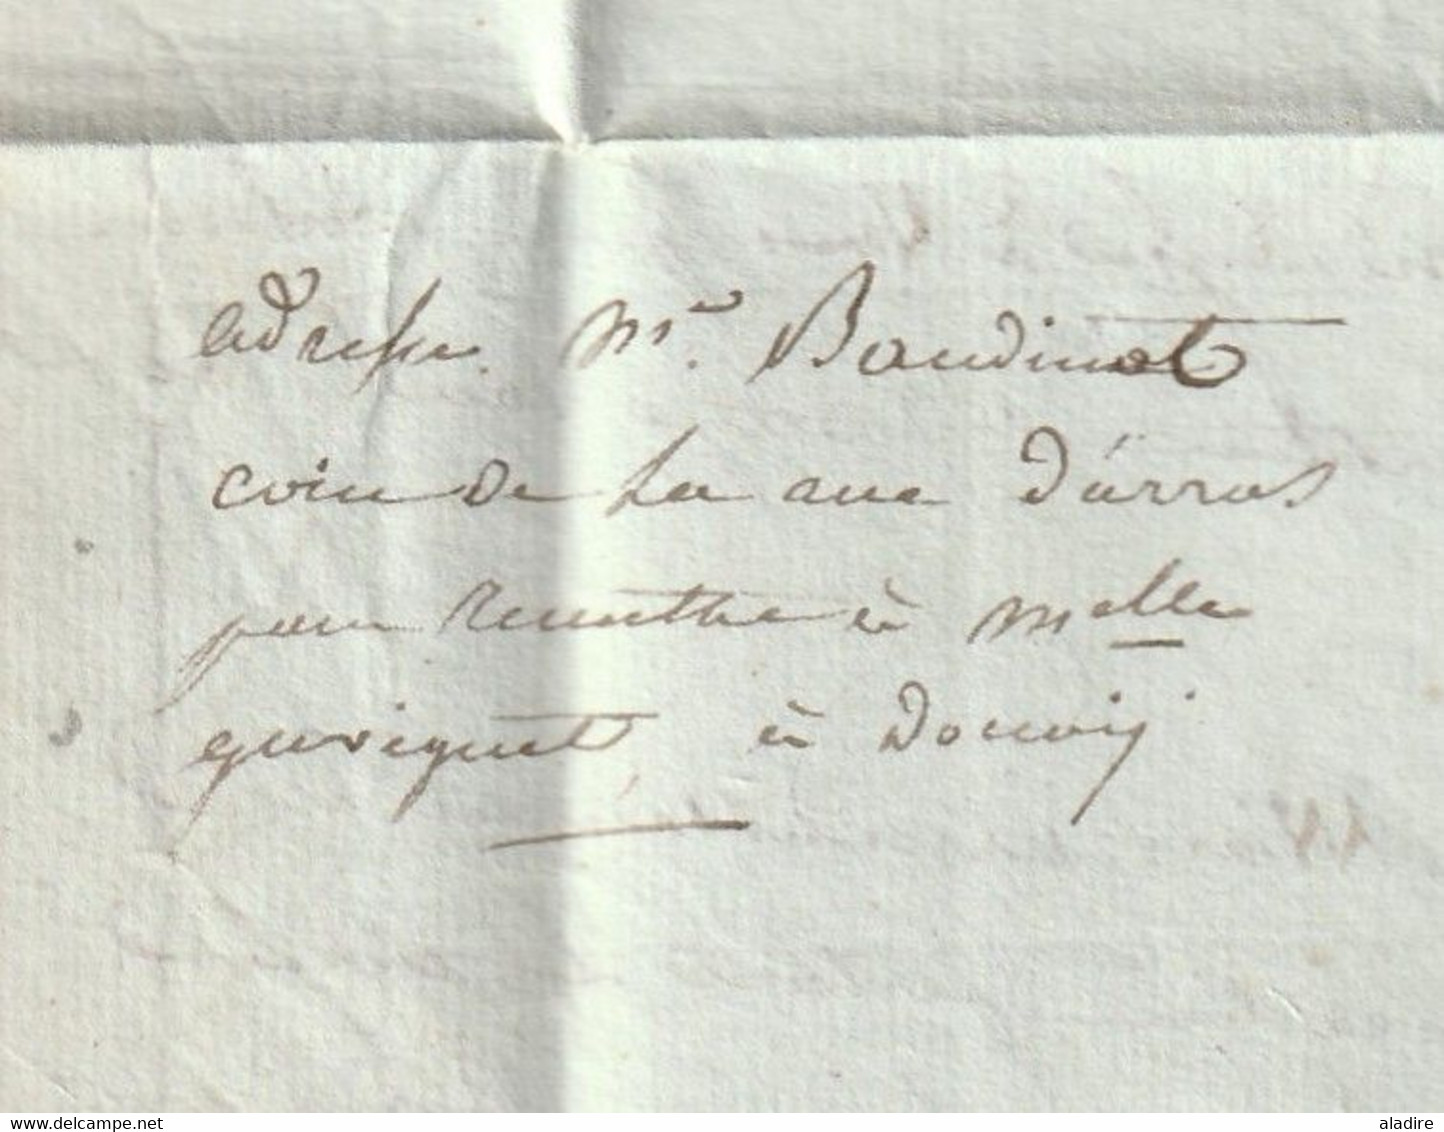 adresse. Mr. Baudinot
coin de la rue d'arras
pour remettre à Melle
quviquet, à Douaij
www.delcampe.net
aladire